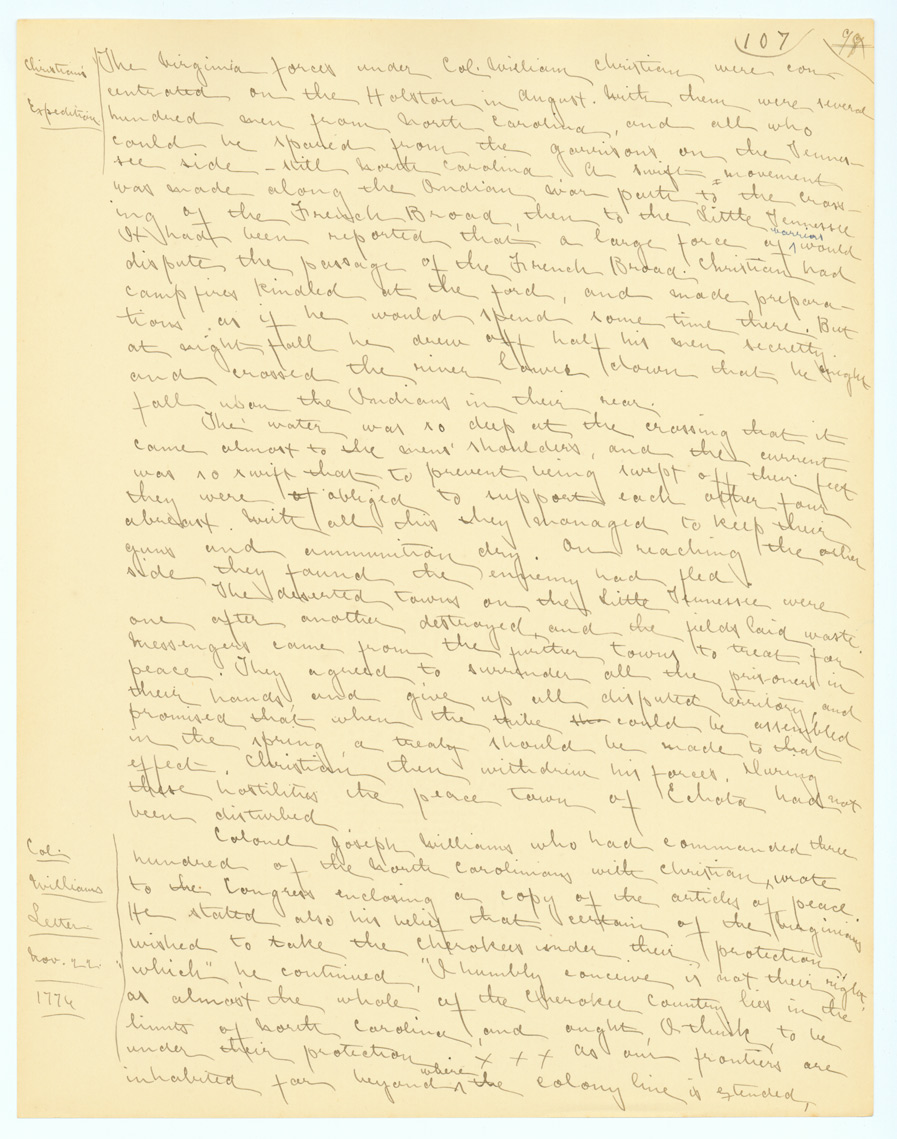 107
Christian's
Expedition
The Virginia forces under Col. William Christian were con-
centrated on the Holston in August. With them were several
hundred men from North Carolina, and all who
could be spared from the garrisons on the Tennes-
see side - still North Carolina. A swift movement
was made along the Indian war path to the cross-
ing of the French Broad, then to the Little Tennessee
It had been reported that a large force of warriors would
dispute the passage of the French Broad. Christian had
camp fires kindled at the ford, and made prepara-
tions as if he would spend some time there. But
at night fall he drew off half his men secretly
and crossed the river lower down that he might
fall upon the Indians in their rear.
The water was so deep at the crossing that it
came almost to the mens' shoulders, and the current
was so swift that to prevent being swept off their feet
they were of obliged to support each other four
abreast. With all this they managed to keep their
guns and ammunition dry. On reaching the other
side they found the enemy had fled.
The deserted towns on the Little Tennessee were
one after another destroyed, and the fields laid waste.
Messengers came from the further towns to treat for
peace. They agreed to surrender all the prisoners in
their hands, and give up all disputed territory, and
promised that when the tribe could be assembled
in the spring, a treaty should be made to that
effect. Christian then withdrew his forces. During
these hostilities the peace town of Echota had not
been disturbed
Col.
Williams
Letter
Nov. 22.
1776
Colonel Joseph Williams who had commanded three
hundred of the North Carolinians with Christian, wrote
to the Congress enclosing a copy of the articles of peace.
He stated also his belief that certain of the Virginians
wished to take the Cherokees under their protection
"which", he continued, "I humbly conceive is not their right
as almost the whole of the Cherokee Country lies in the
limits of North Carolina, and ought, I think, to be
under their protection x x x As our frontiers are
inhabited far beyond where the colony line is extended,